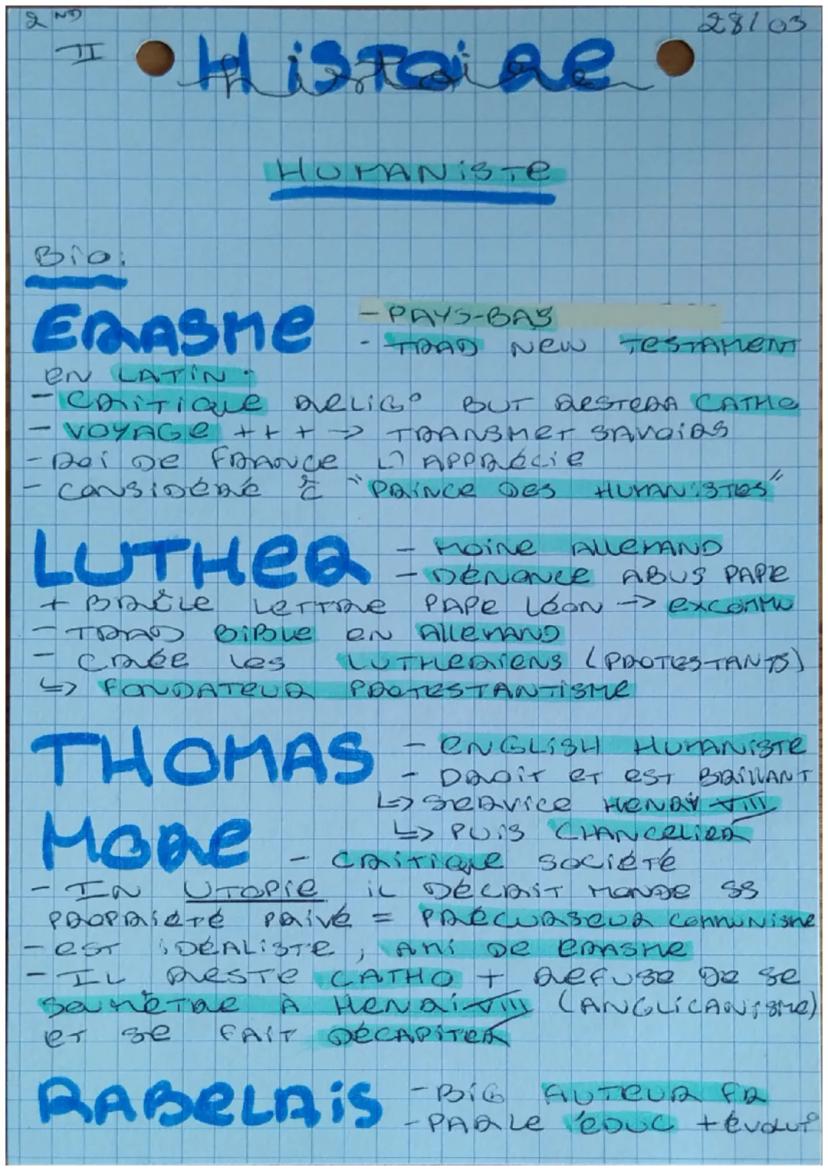 2ND
28/03
II
Histoire
HUMANISTE
Bio:
ERASME
- PAYS-BAS
- TRAD NEW TESTAMENT
EN LATIN.
- CRITIQUE RELIG° BUT RESTERA CATHO
- VOYAGE +++ → TRANSMET SAVOIRS
- ROI DE FRANCE L'APPRÉCIE
- CONSIDÉRÉ "PRINCE DES HUMANISTES"
LUTHER
- MOINE ALLEMAND
- DÉNONCE ABUS PAPE
+ BRÛLE LETTRE PAPE LÉON → EXCOMMU
- TRAD BIBLE EN ALLEMAND
- CRÉE LES LUTHERIENS (PROTESTANTS)
↳ FONDATEUR PROTESTANTISME
THOMAS
- ENGLISH HUMANISTE
- DROIT ET EST BRILLANT
↳ SERVICE HENRY VIII
↳ PUIS CHANCELIER
MORE
- CRITIQUE SOCIÉTÉ
- IN UTOPIE IL DÉCRIT MONDE SS
PROPRIÉTÉ PRIVÉ = PRÉCURSEUR COMMUNISME
- EST IDÉALISTE, AMI DE ERASME
- IL RESTE CATHO + REFUSE DE SE
SOUMÈTRE À HENRI VIII (ANGLICANISME)
ET SE FAIT DÉCAPITER
RABELAIS
- BIG AUTEUR FR
- PARLE ÉDUC + ÉVOLU°